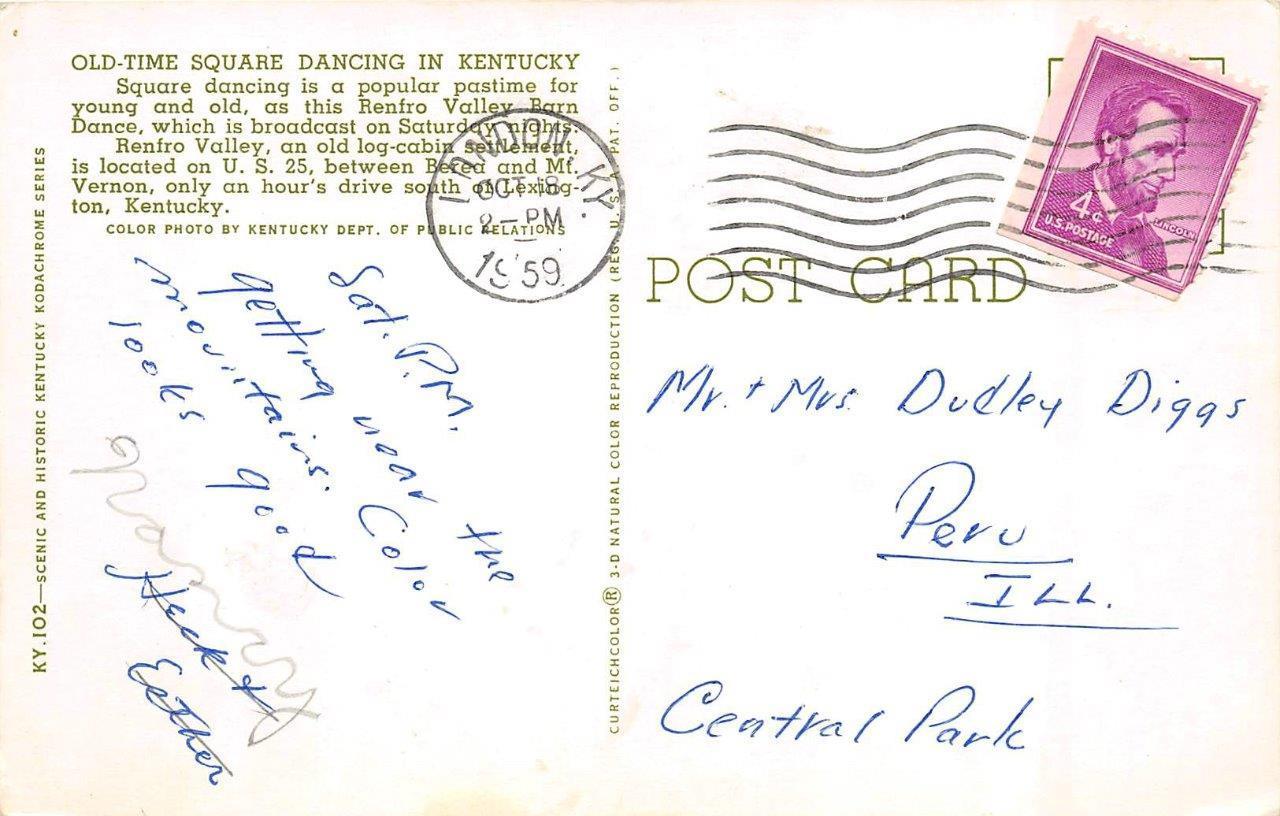 OLD-TIME SQUARE DANCING IN KENTUCKY
Square dancing is a popular pastime for
young and old, as this Renfro Valley Barn
Dance, which is broadcast on Saturday nights.
Renfro Valley, an old log-cabin settlement,
is located on U. S. 25, between Berea and Mt.
Vernon, only an hour's drive south of Lexing-
ton, Kentucky.
COLOR PHOTO BY KENTUCKY DEPT. OF PUBLIC RELATIONS
KY.102—SCENIC AND HISTORIC KENTUCKY KODACHROME SERIES
Sat. P.M.
getting near the
mountains. Color
looks good
&
Esther
LONDON, KY.
OCT 18
2—PM
1959
CURTEICHCOLOR® 3-D NATURAL COLOR REPRODUCTION (REG. U. S. PAT. OFF.)
4¢
U.S. POSTAGE
LINCOLN
POST CARD
Mr. + Mrs. Dudley Diggs
Peru
ILL.
Central Park